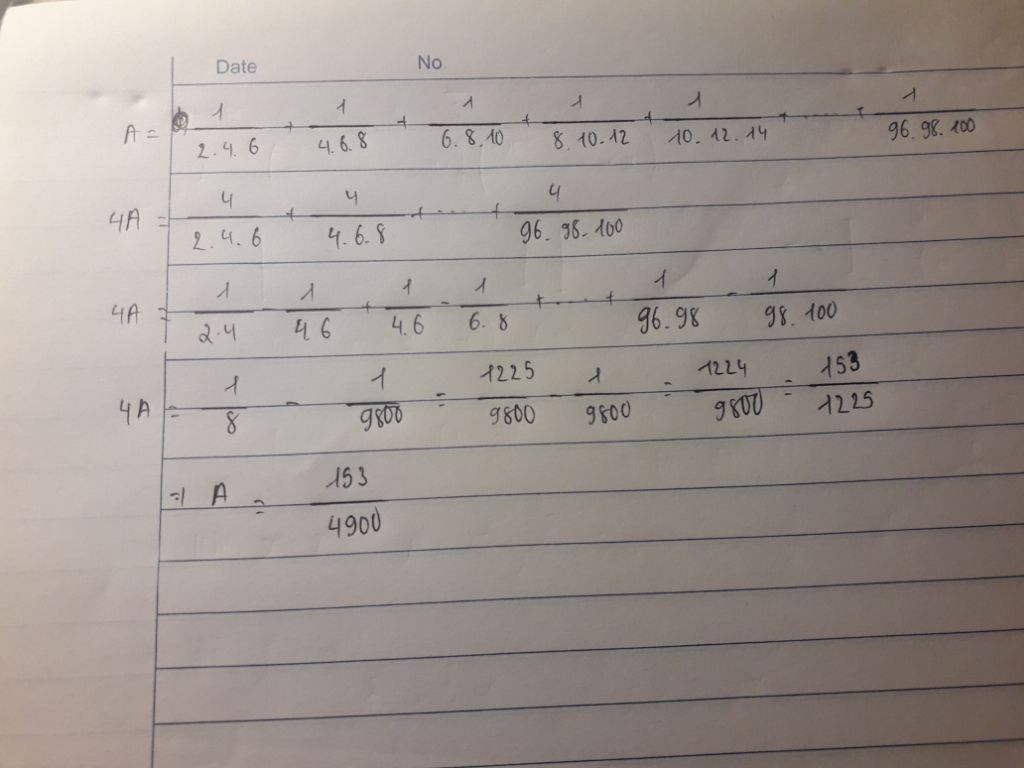 Date No
A = 1/2.4.6 + 1/4.6.8 + 1/6.8.10 + 1/8.10.12 + 1/10.12.14 + ..... + 1/96.98.100
4A = 4/2.4.6 + 4/4.6.8 + .... + 4/96.98.100
4A = 1/2.4 - 1/4.6 + 1/4.6 - 1/6.8 + .... + 1/96.98 - 1/98.100
4A = 1/8 - 1/9800 = 1225/9800 - 1/9800 = 1224/9800 = 153/1225
=) A = 153/4900